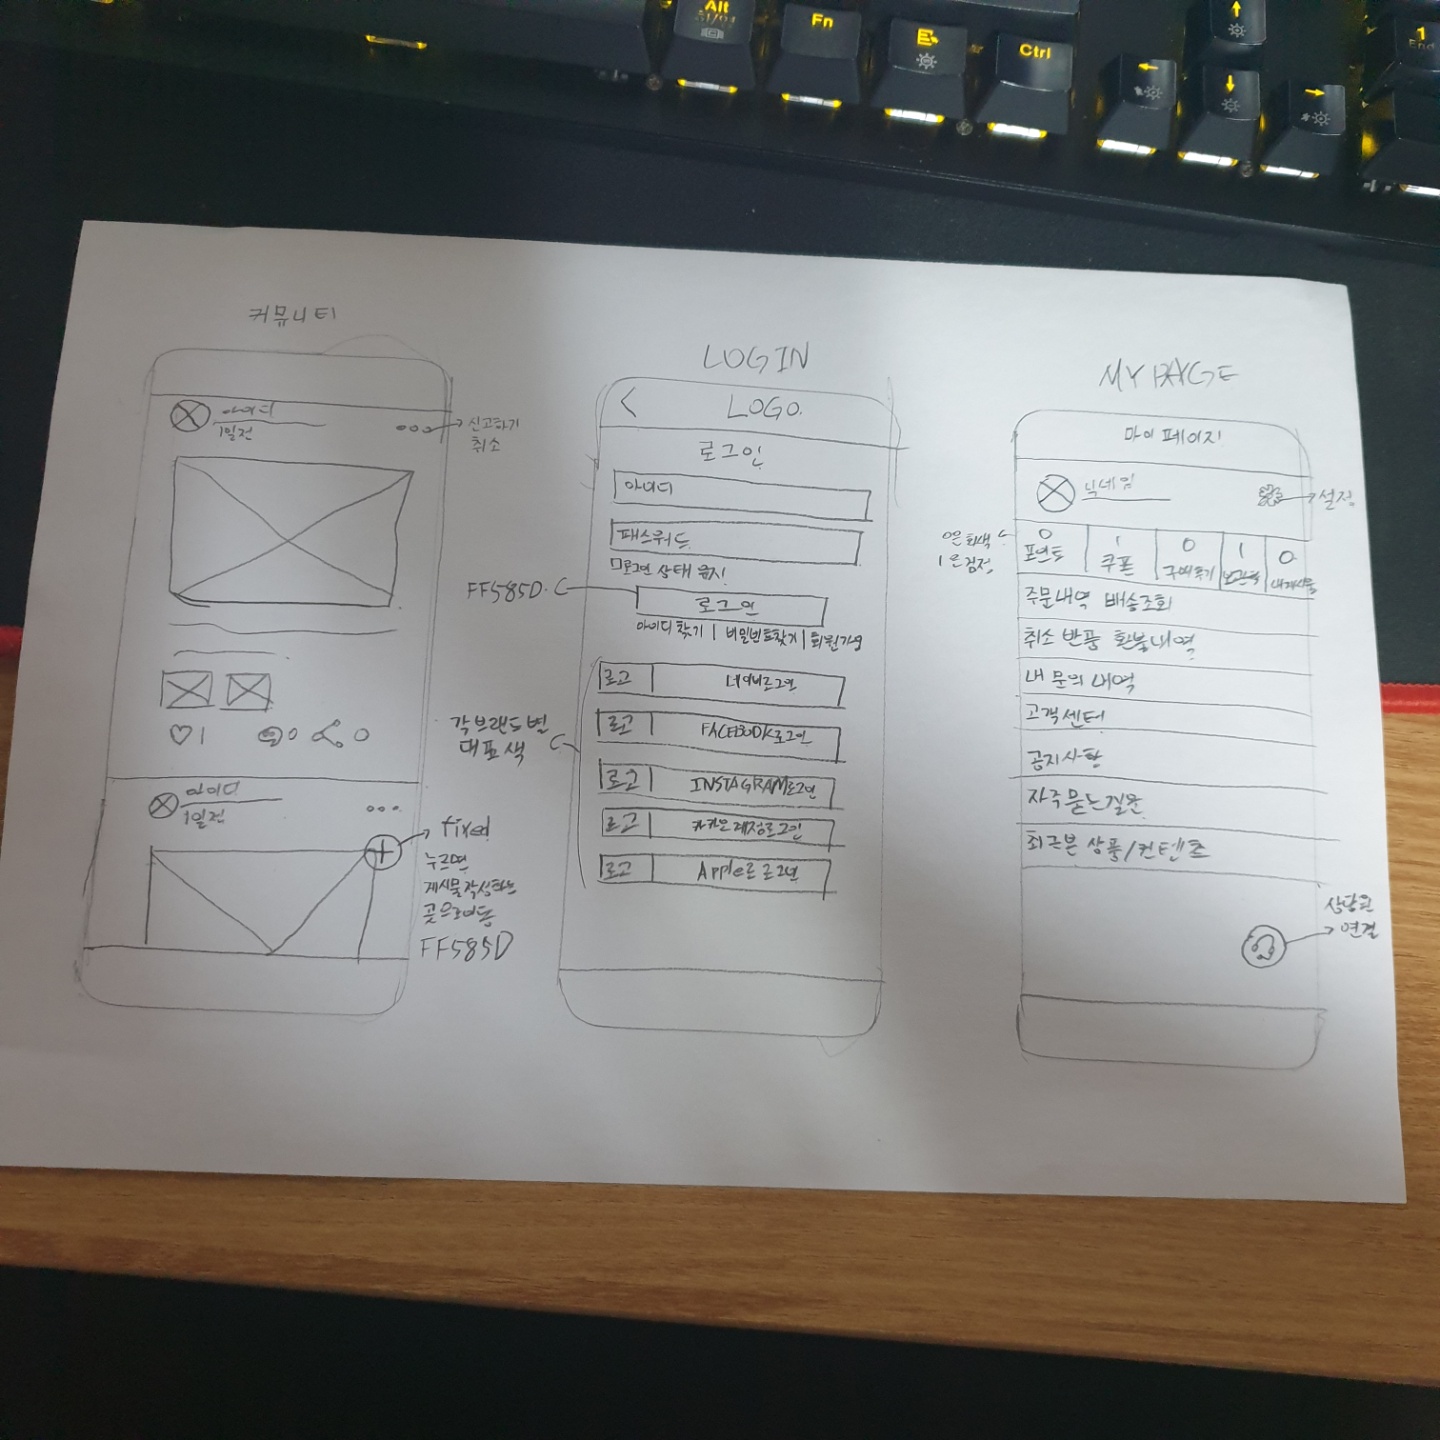 Alt
Fn
Ctrl
1
End
커뮤니티
아이디
1일전
신고하기
취소
1
0
0
아이디
1일전
fixed
누르면
게시물작성하는
곳으로이동
FF585D
LOGIN
LOGO
로그인
아이디
패스워드
로그인 상태 유지
FF585D
로그인
아이디 찾기 | 비밀번호찾기 | 회원가입
각브랜드별
대표색
로고
네이버로그인
로고
FACEBOOK로그인
로고
INSTAGRAM로그인
로고
카카오계정로그인
로고
Apple로 로그인
MY PAYGE
마이페이지
닉네임
설정
0은 회색
1은 검정
0
포인트
1
쿠폰
0
구매후기
1
0
내게시물
주문내역 배송조회
취소 반품 환불내역
내 문의 내역
고객센터
공지사항
자주묻는질문
최근본 상품/컨텐츠
상담원
연결